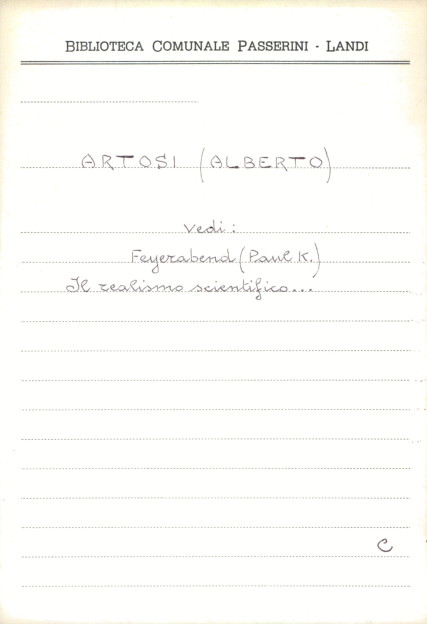 BIBLIOTECA COMUNALE PASSERINI - LANDI
ARTOSI (ALBERTO)
Vedi:
Feyerabend (Paul K.)
Il realismo scientifico...
C